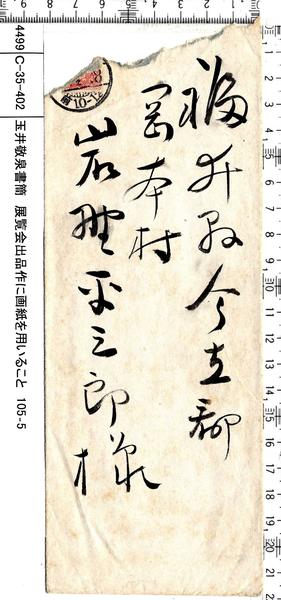 福井县今立郡
岡本村
岩野平三郎様
4499 C-35-402 玉井敬泉書簡 展覧会出品作に画紙を用いること 105-5
前10-